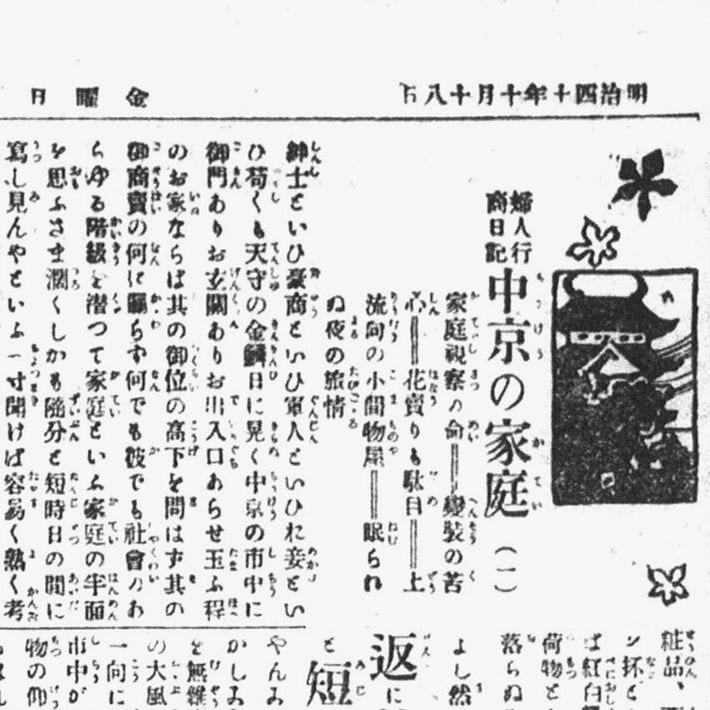 明治四十年十月十八日
金曜日
婦人行
商日記
中京の家庭(一)
家庭視察の命＝變裝の苦
心＝花賣りも駄目＝上
流向の小間物屋＝眠られ
ぬ夜の旅情
紳士といひ豪商といひ軍人といひ妾とい
ひ苟くも天守の金鱗日に晃く中京の市中に
御門ありお玄關ありお出入口あらせ玉ふ程
のお家ならば其の御位の高下を問はず其の
御商賣の何に關らず何でも彼でも社會のあ
らゆる階級を潜つて家庭といふ家庭の半面
を思ふさま濶くしかも隨分と短時日の間に
寫し見んやといふ一寸聞けば容易く熟く考
粧品、
ば紅白
荷物と
落らぬ
よし然
返に
と短
やんみ
かしみ
を無
の大風
一向に
市中が
物の仰